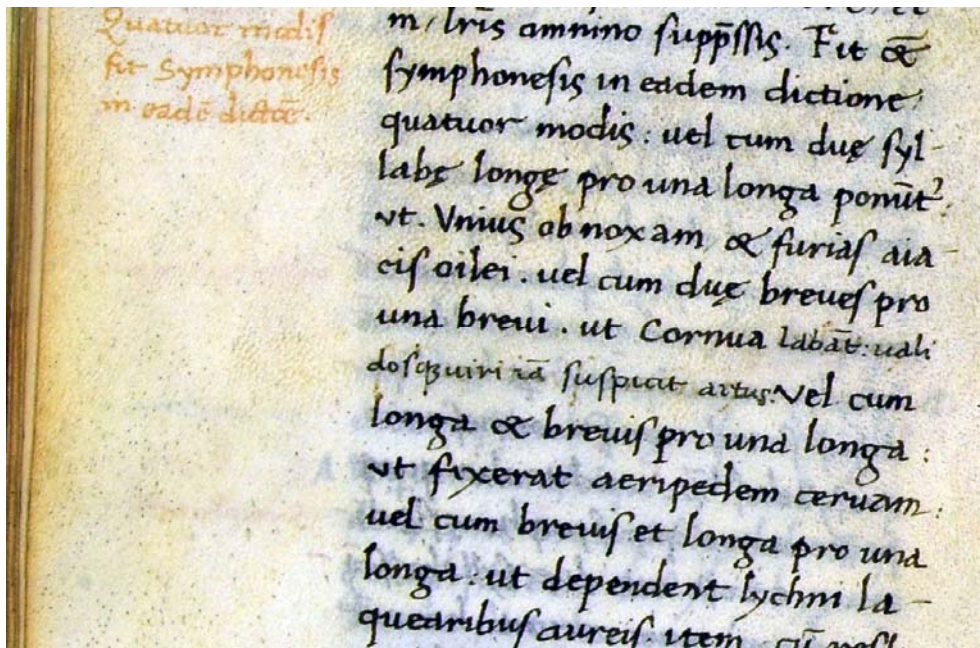 Quatuor modis
fit Symphonesis
in eadē dictōe.
m, lr̄is omnino supp̄ssis. Fit &̄
symphonesis in eadem dictione,
quatuor modis: uel cum duę syl-
labę longę pro una longa ponūt².
vt. Vnius ob noxam & furias aia-
cis oilei. uel cum duę breues pro
una breui. ut Cornua labāt: uali
dosqꝫ uiri iā suspicit artus. Vel cum
longa & breuis pro una longa:
vt fixerat aeripedem ceruam:
uel cum breuis et longa pro una
longa: ut dependent lychni la-
quearibus aureis. item cū